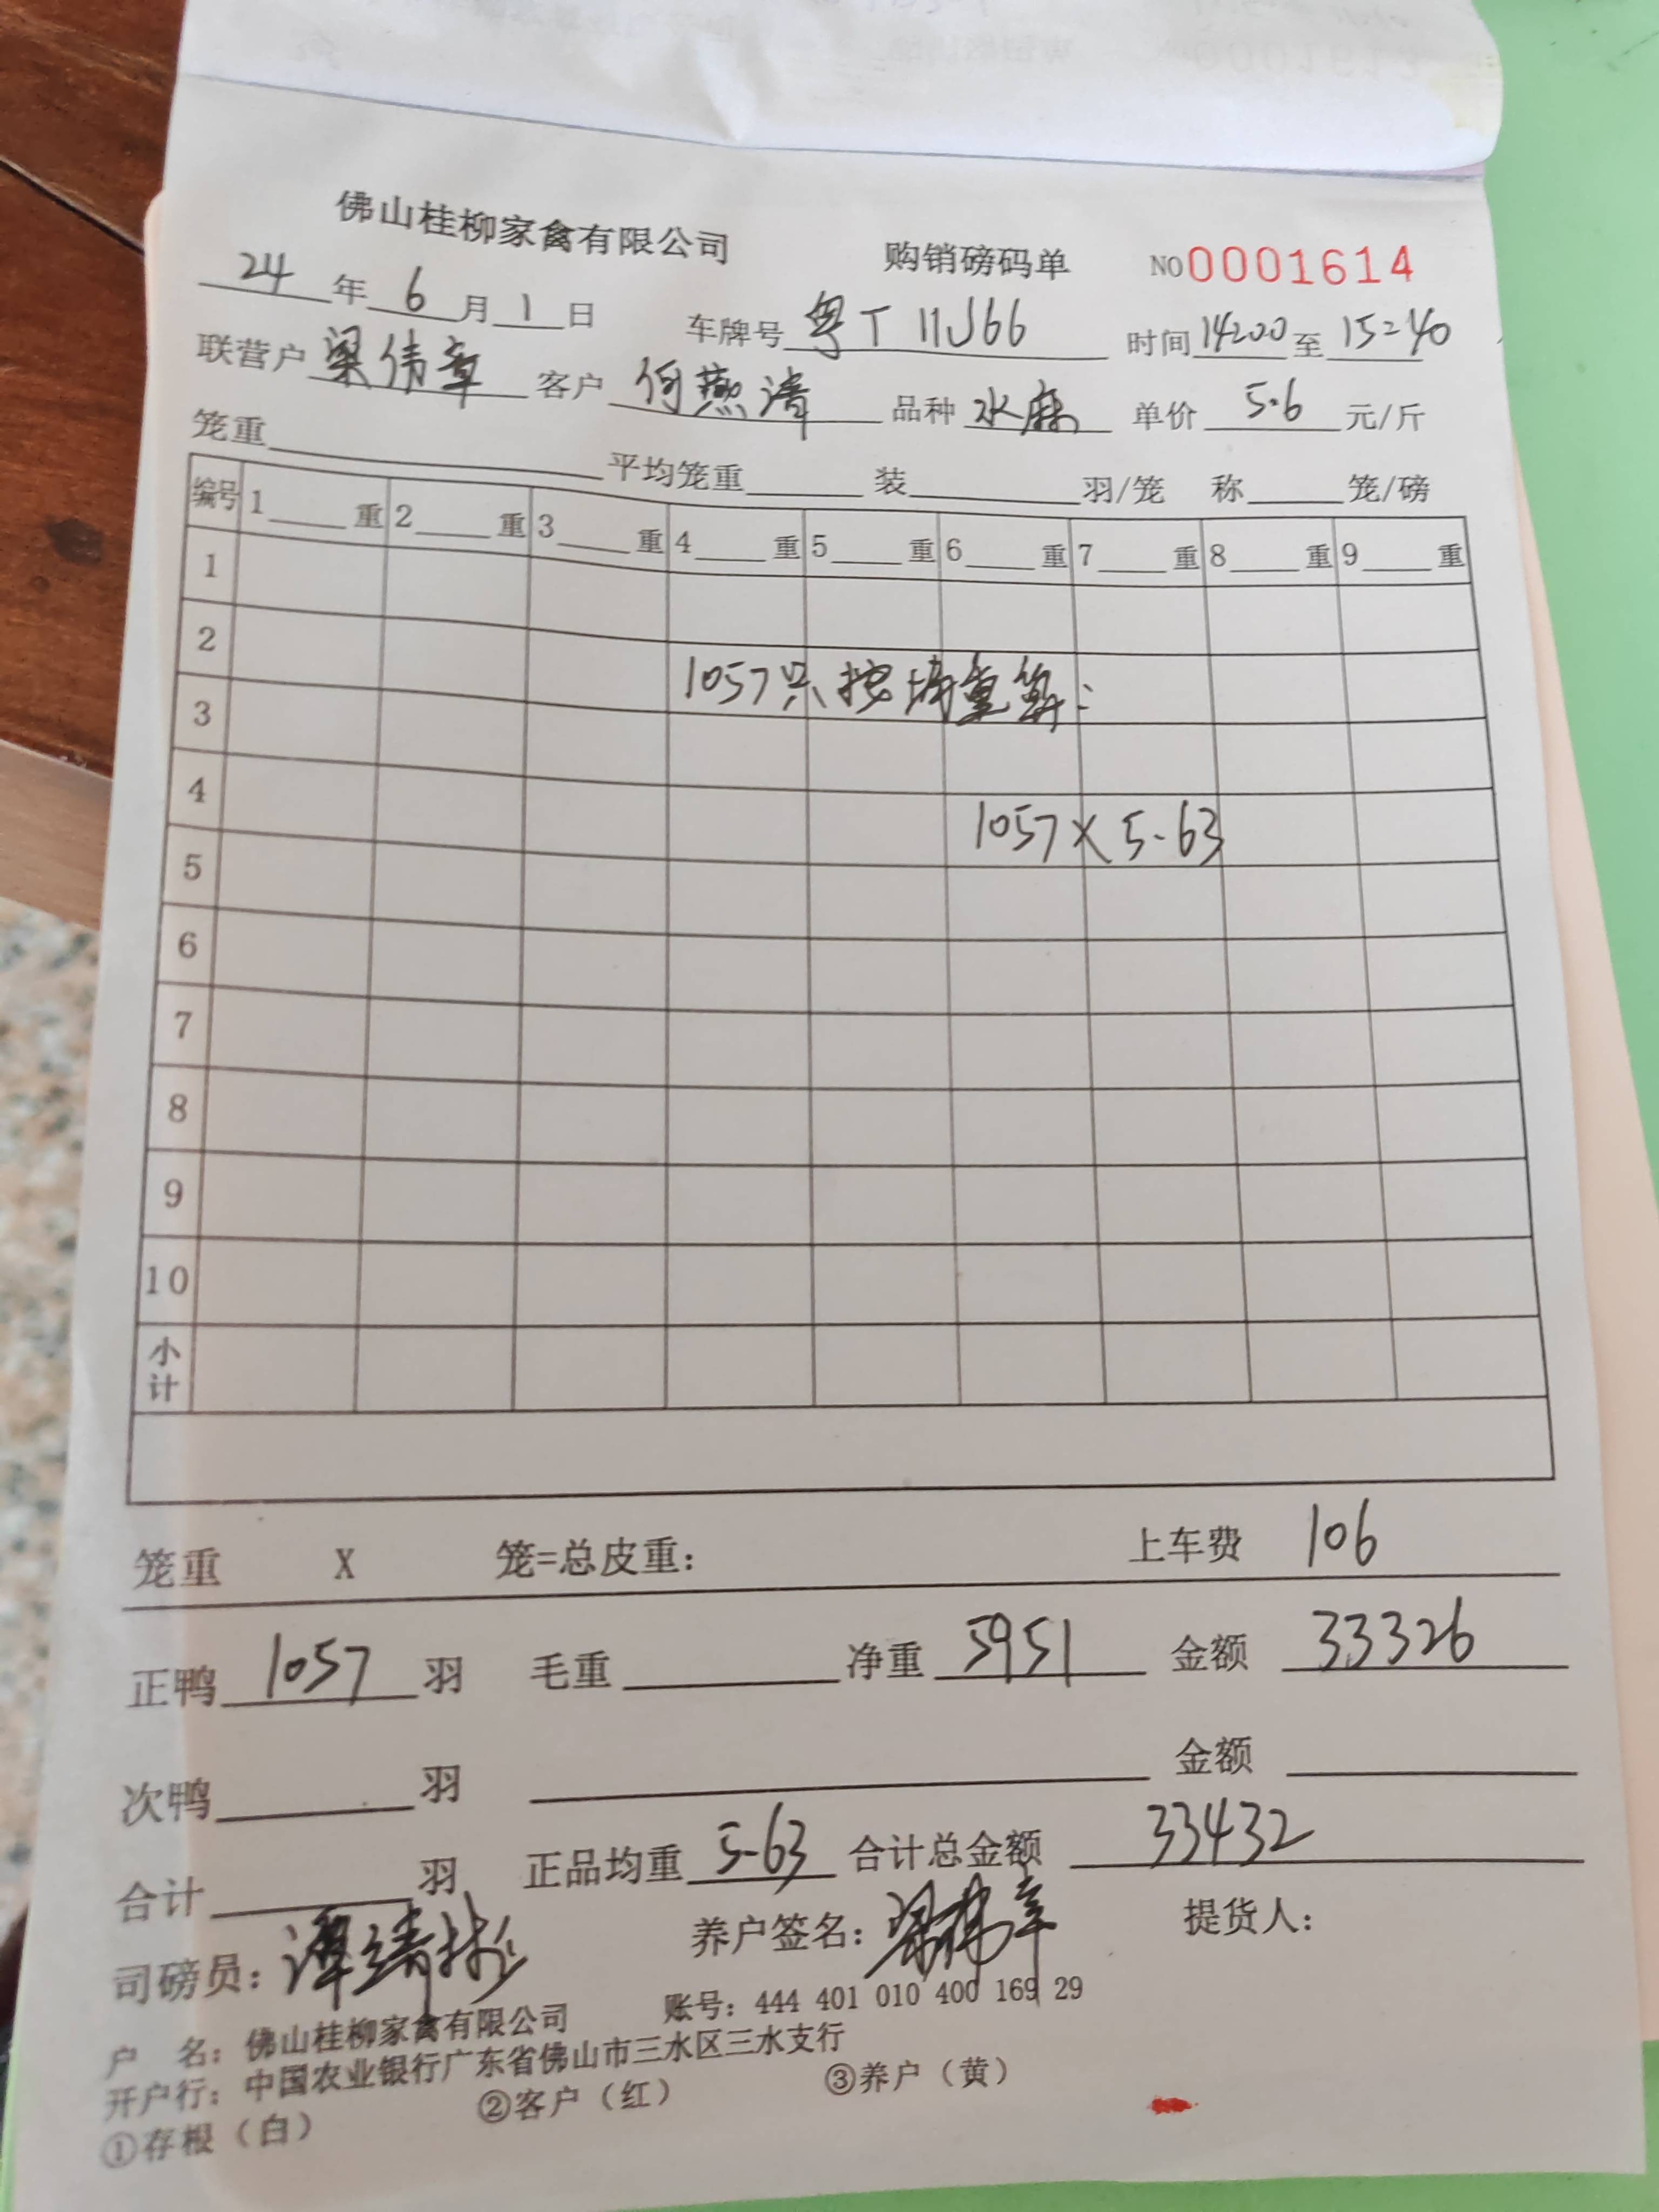 佛山桂柳家禽有限公司 购销磅码单 NO0001614
24年6月1日 车牌号 粤T 11J66 时间14:00至15:40
联营户 梁伟章 客户 何燕清 品种 水麻 单价 5.6 元/斤
笼重 平均笼重 装 羽/笼 称 笼/磅
编号 1 重 2 重 3 重 4 重 5 重 6 重 7 重 8 重 9 重
1
2
1057只按均重算:
3
4
1057×5.63
5
6
7
8
9
10
小计
笼重 X 笼=总皮重: 上车费 106
正鸭 1057 羽 毛重 净重 5951 金额 33326
次鸭 羽 金额
合计 羽 正品均重 5.63 合计总金额 33432
司磅员: 养户签名: 梁伟章 提货人:
户 名: 佛山桂柳家禽有限公司 账号: 444 401 010 400 169 29
开户行: 中国农业银行广东省佛山市三水区三水支行
①存根（白） ②客户（红） ③养户（黄）